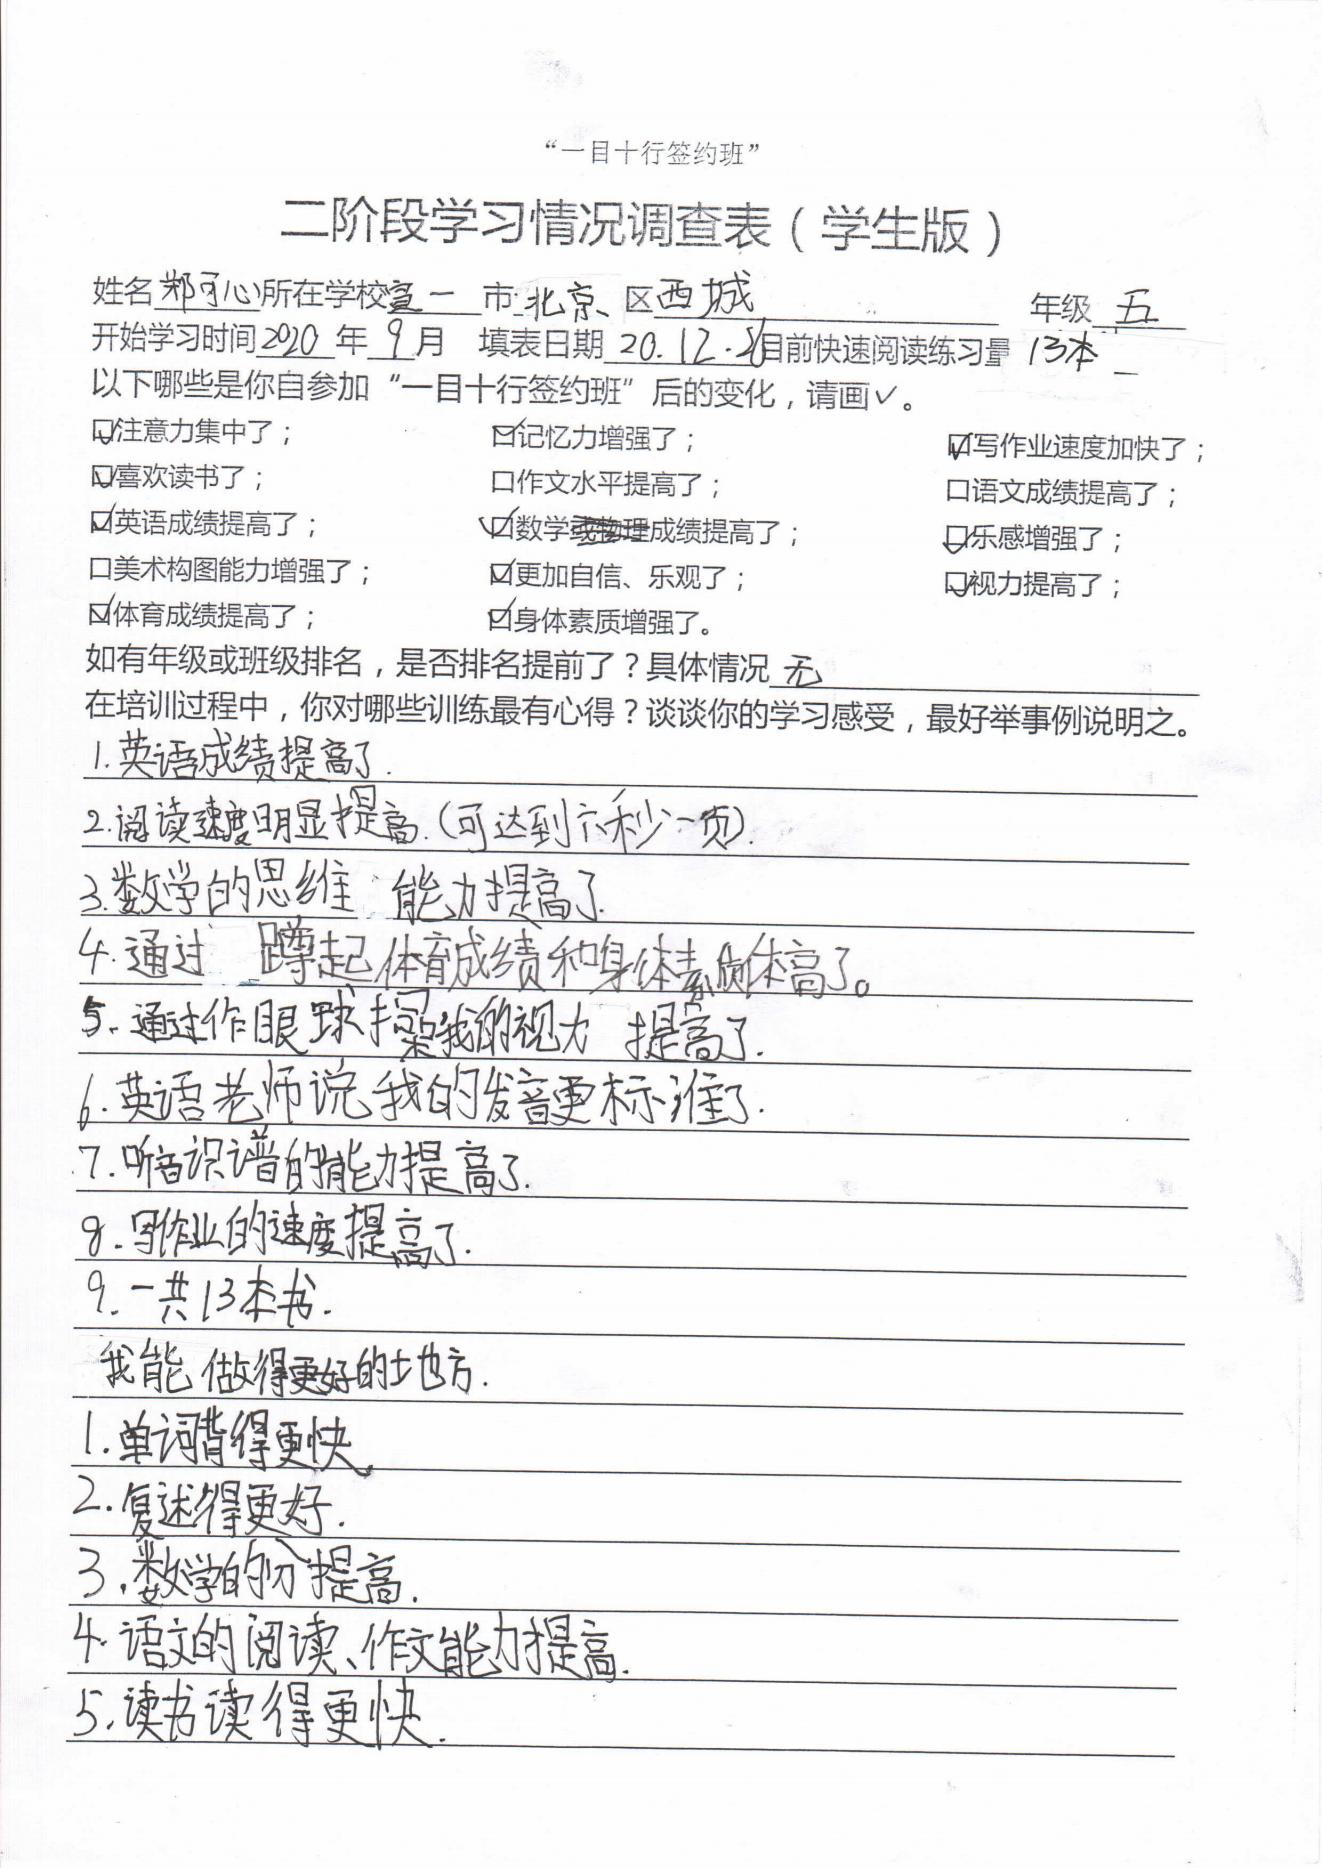 “一目十行签约班”
二阶段学习情况调查表（学生版）
姓名郑可心所在学校宣一 市北京 区西城 年级五
开始学习时间2020年9月 填表日期20.12.26目前快速阅读练习量13本
以下哪些是你自参加“一目十行签约班”后的变化，请画✓。
☑注意力集中了； ☑记忆力增强了； ☑写作业速度加快了；
☑喜欢读书了； 口作文水平提高了； 口语文成绩提高了；
☑英语成绩提高了； ☑数学或物理成绩提高了； ☑乐感增强了；
口美术构图能力增强了； ☑更加自信、乐观了； ☑视力提高了；
☑体育成绩提高了； ☑身体素质增强了。
如有年级或班级排名，是否排名提前了？具体情况无
在培训过程中，你对哪些训练最有心得？谈谈你的学习感受，最好举事例说明之。
1.英语成绩提高了.
2.阅读速度明显提高.(可达到六秒一页).
3.数学的思维 能力提高了.
4.通过 蹲起体育成绩和身体素质体高了。
5.通过作眼球操我的视力 提高了.
6.英语老师说我的发音更标准了.
7.听音识谱的能力提高了.
8.写作业的速度提高了.
9.一共13本书.
我能做得更好的地方.
1.单词背得更快.
2.复述得更好.
3.数学的分提高.
4.语文的阅读、作文能力提高.
5.读书读得更快.